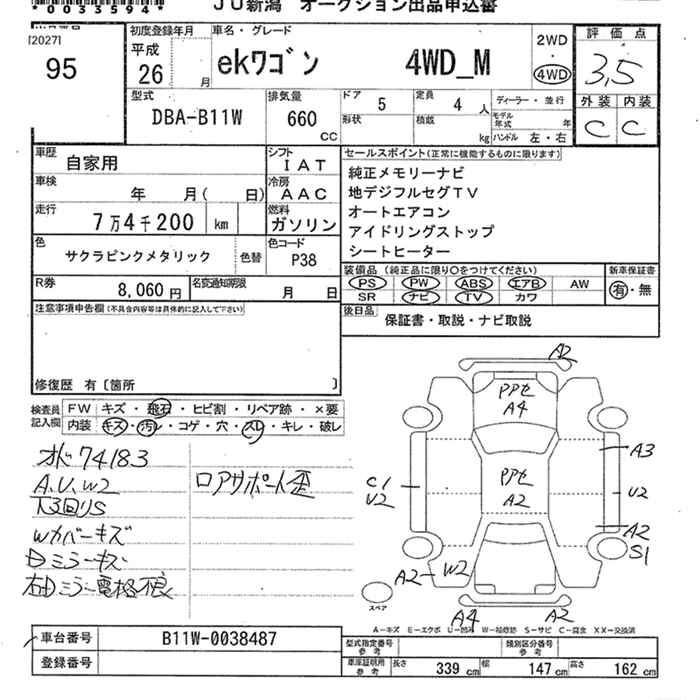 *0033594*
JU新潟 オークション出品申込書
[2027]
95
初度登録年月
平成
26 月
車名・グレード
ekワゴン 4WD_M
2WD
4WD
評価点
3,5
外装 内装
C C
型式
DBA-B11W
排気量
660 CC
ドア 5
定員 4 人
形状
積載 kg
ディーラー・並行
モデル年式 年
ハンドル 左・右
車歴 自家用
シフト IAT
車検 年 月( 日)
冷房 AAC
走行 7万4千200 km
燃料 ガソリン
色 サクラピンクメタリック 色替
色コード P38
R券 8,060円
名変通知期限 月 日
セールスポイント(正常に機能するものに限ります)
純正メモリーナビ
地デジフルセグTV
オートエアコン
アイドリングストップ
シートヒーター
装備品(純正品に限り○をつけてください)
PS PW ABS エアB AW
SR ナビ TV カワ
新車保証書
有・無
後日品 保証書・取説・ナビ取説
注意事項申告欄(不具合内容等は具体的に記入して下さい)
修復歴 有〔箇所 〕
検査員記入欄
FW キズ・飛石・ヒビ割・リペア跡・×要
内装 キズ・汚レ・コゲ・穴・スレ・キレ・破レ
オド74183
A.U.W2
下3回りS
Wカバーキズ
Dミラーキズ
右Dミラー電格不良
ロアサポート歪
A2
PPセ
A4
A3
C1
U2
PPセ
A2
U2
A2
S1
A2-W2
A4
A2
スペア
A-キズ E-エクボ U-凹ミ W-補修跡 S-サビ C-腐食 XX-交換済
車台番号 B11W-0038487
登録番号
型式指定番号 参考
類別区分番号 参考
車庫証明用 参考
長さ 339 cm
幅 147 cm
高さ 162 cm